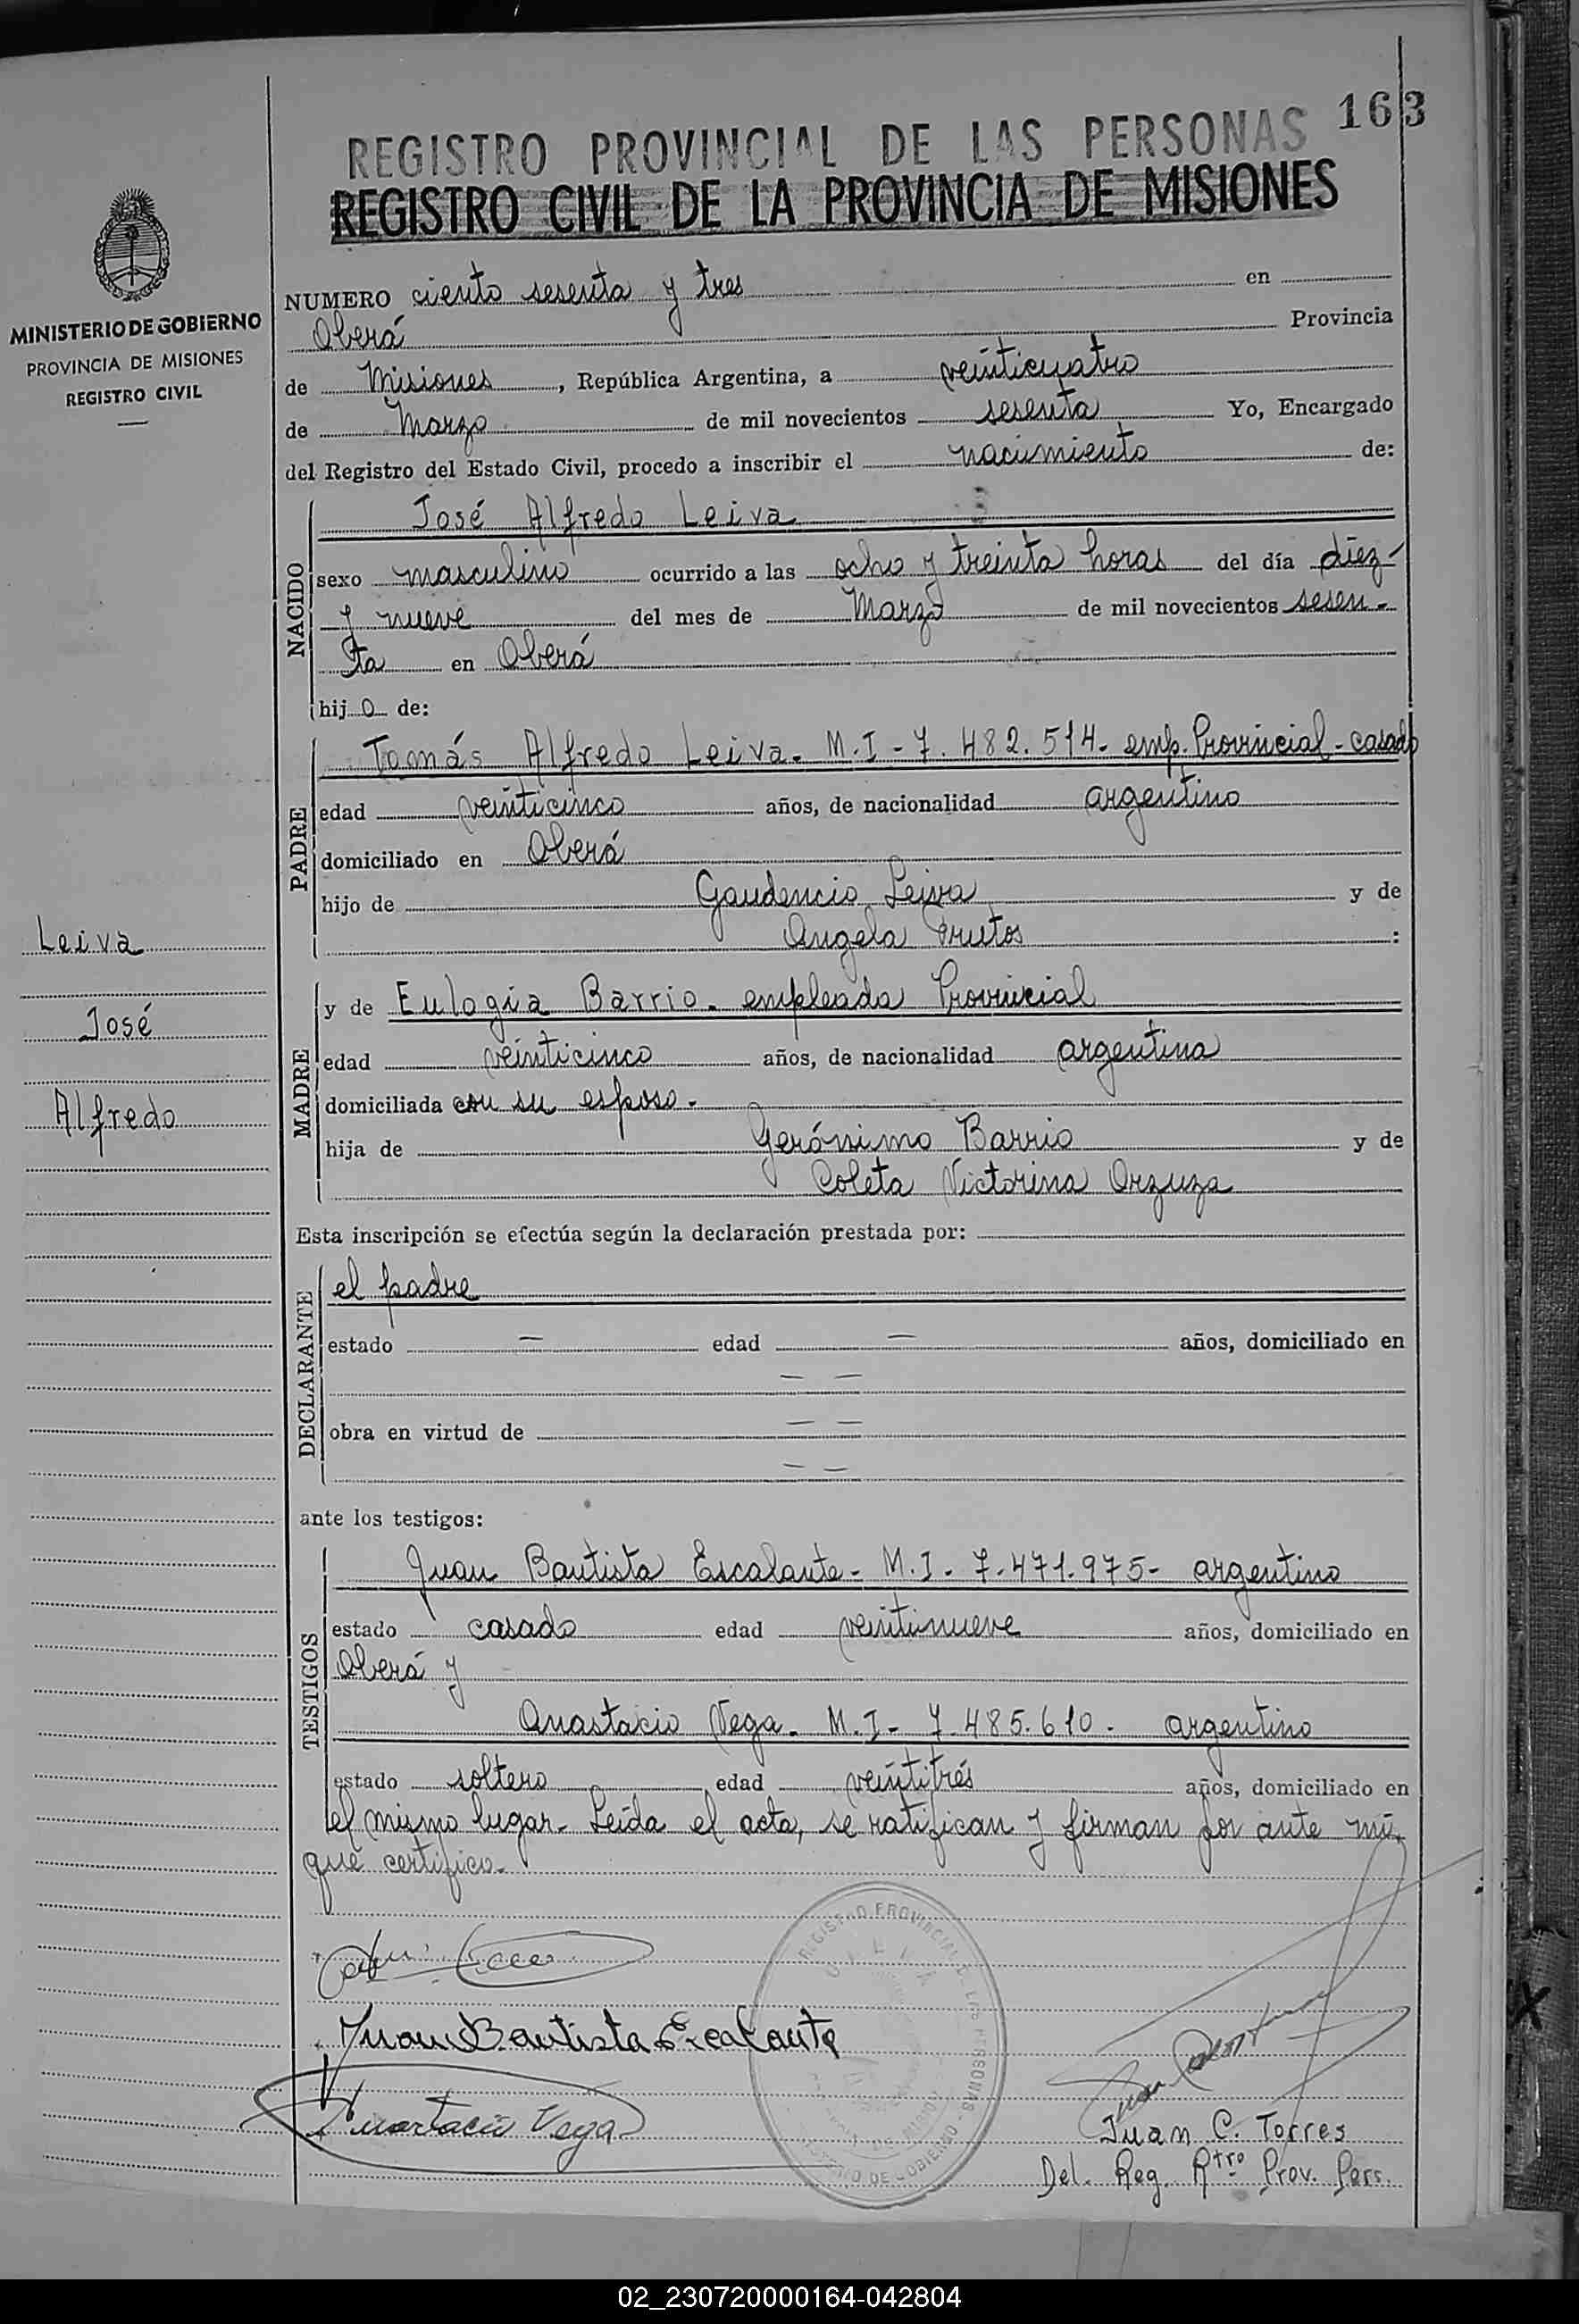 163
REGISTRO PROVINCIAL DE LAS PERSONAS
REGISTRO CIVIL DE LA PROVINCIA DE MISIONES
MINISTERIO DE GOBIERNO
PROVINCIA DE MISIONES
REGISTRO CIVIL
NUMERO ciento sesenta y tres en
Oberá Provincia
de Misiones, República Argentina, a veinticuatro
de Marzo de mil novecientos sesenta Yo, Encargado
del Registro del Estado Civil, procedo a inscribir el nacimiento de:
NACIDO
José Alfredo Leiva
sexo masculino ocurrido a las ocho y treinta horas del día diez-
y nueve del mes de Marzo de mil novecientos sesen-
ta en Oberá
hijo de:
PADRE
Tomás Alfredo Leiva. M.I-7.482.514. emp. Provincial-casado
edad veinticinco años, de nacionalidad argentino
domiciliado en Oberá
hijo de Gaudencio Leiva y de
Angela Frutos :
Leiva
José
Alfredo
MADRE
y de Eulogia Barrio. empleada Provincial
edad veinticinco años, de nacionalidad argentina
domiciliada con su esposo.
hija de Gerónimo Barrio y de
Coleta Victorina Orzuza
Esta inscripción se efectúa según la declaración prestada por:
DECLARANTE
el padre
estado — edad — años, domiciliado en
— —
obra en virtud de — —
— —
ante los testigos:
TESTIGOS
Juan Bautista Escalante- M.I- 7.471.975- argentino
estado casado edad veintinueve años, domiciliado en
Oberá y
Anastacio Vega. M.I- 7.485.610. argentino
estado soltero edad veintitrés años, domiciliado en
el mismo lugar- Leída el acta, se ratifican y firman por ante mí,
que certifico.
Juan Bautista Escalante
Anastacio Vega
REGISTRO PROVINCIAL DE LAS PERSONAS
Juan C. Torres
Del. Reg. Rtro Prov. Pers.
02_230720000164-042804